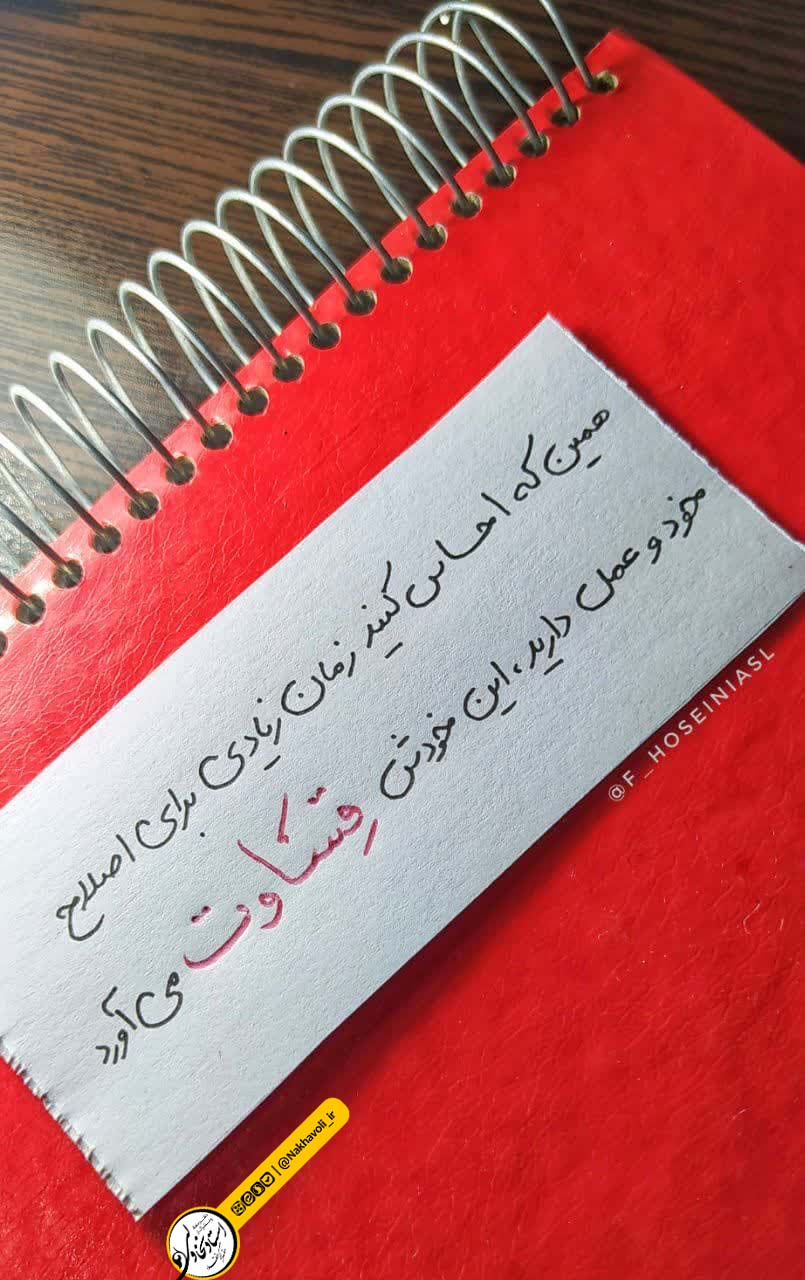 همین که احساس کنید زمان زیادی برای اصلاح
خود و عمل دارید، این خودش قساوت می‌آورد
@F_HOSEINIASL
@Nakhavoli_ir